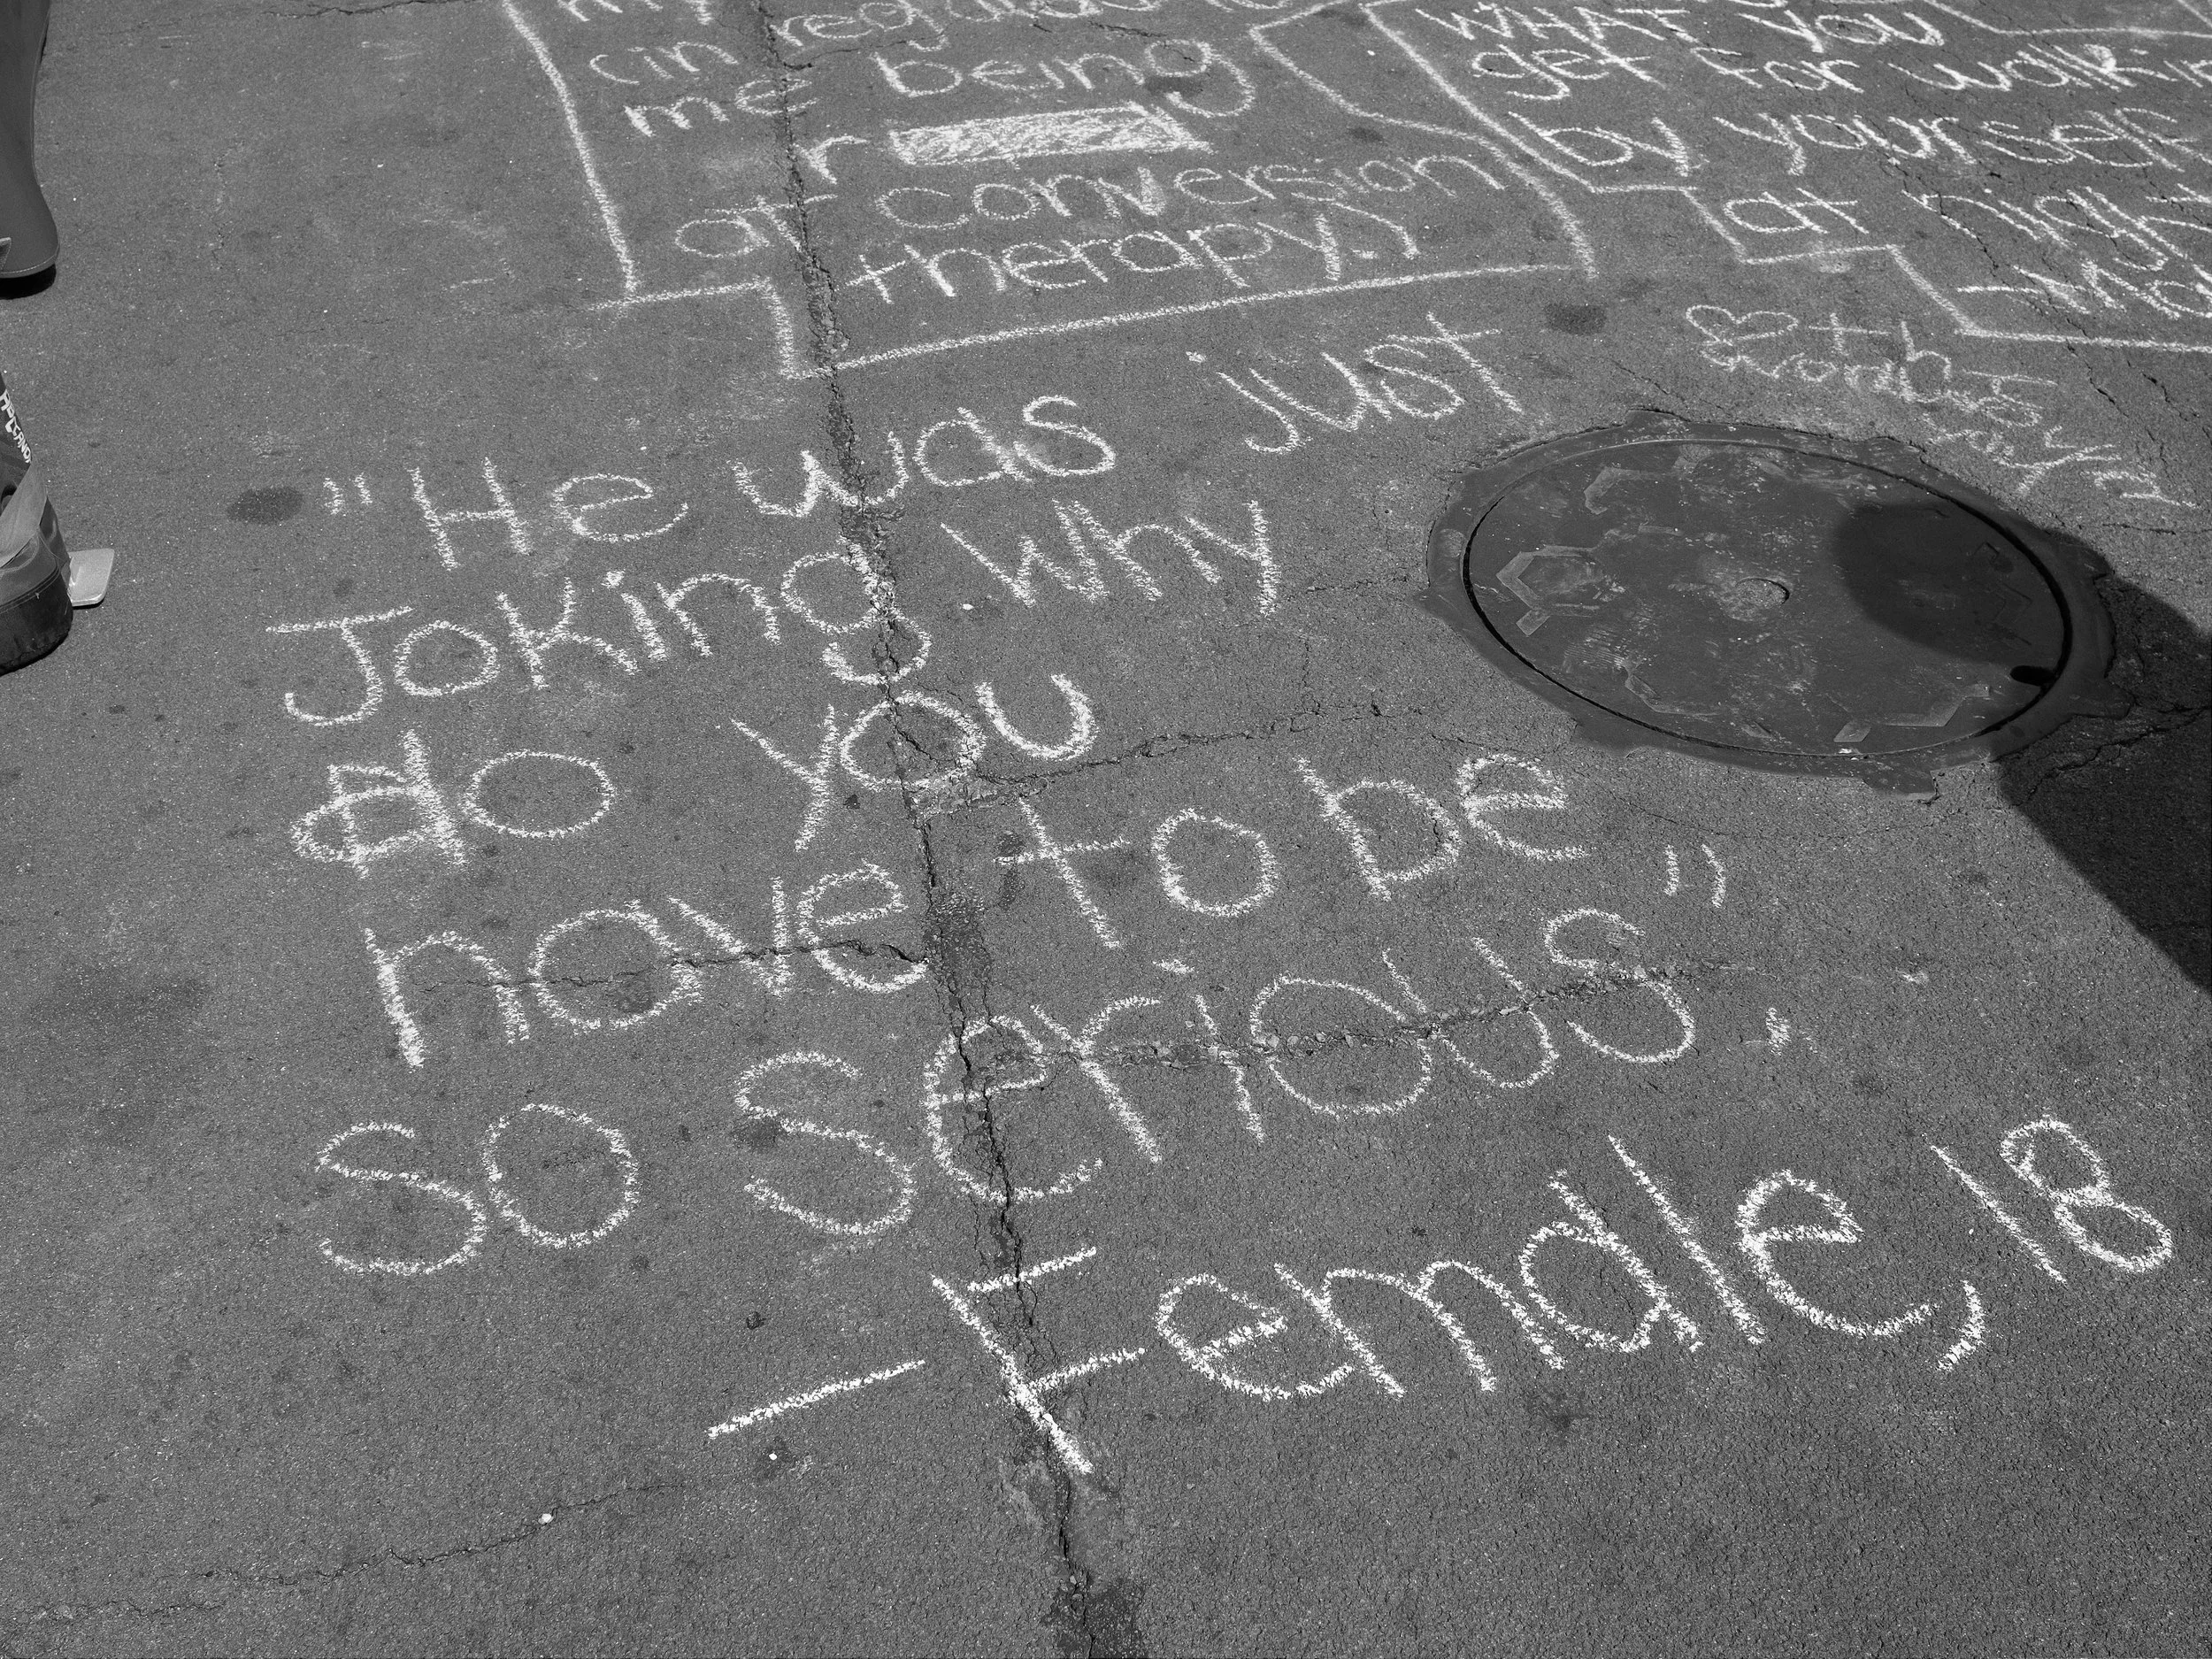 (in regards to
me being
at conversion
therapy.)
WHAT you
get for walkin
by yourself
at night
"He was just
Joking Why
do you
have to be
so serious".
- Female, 18